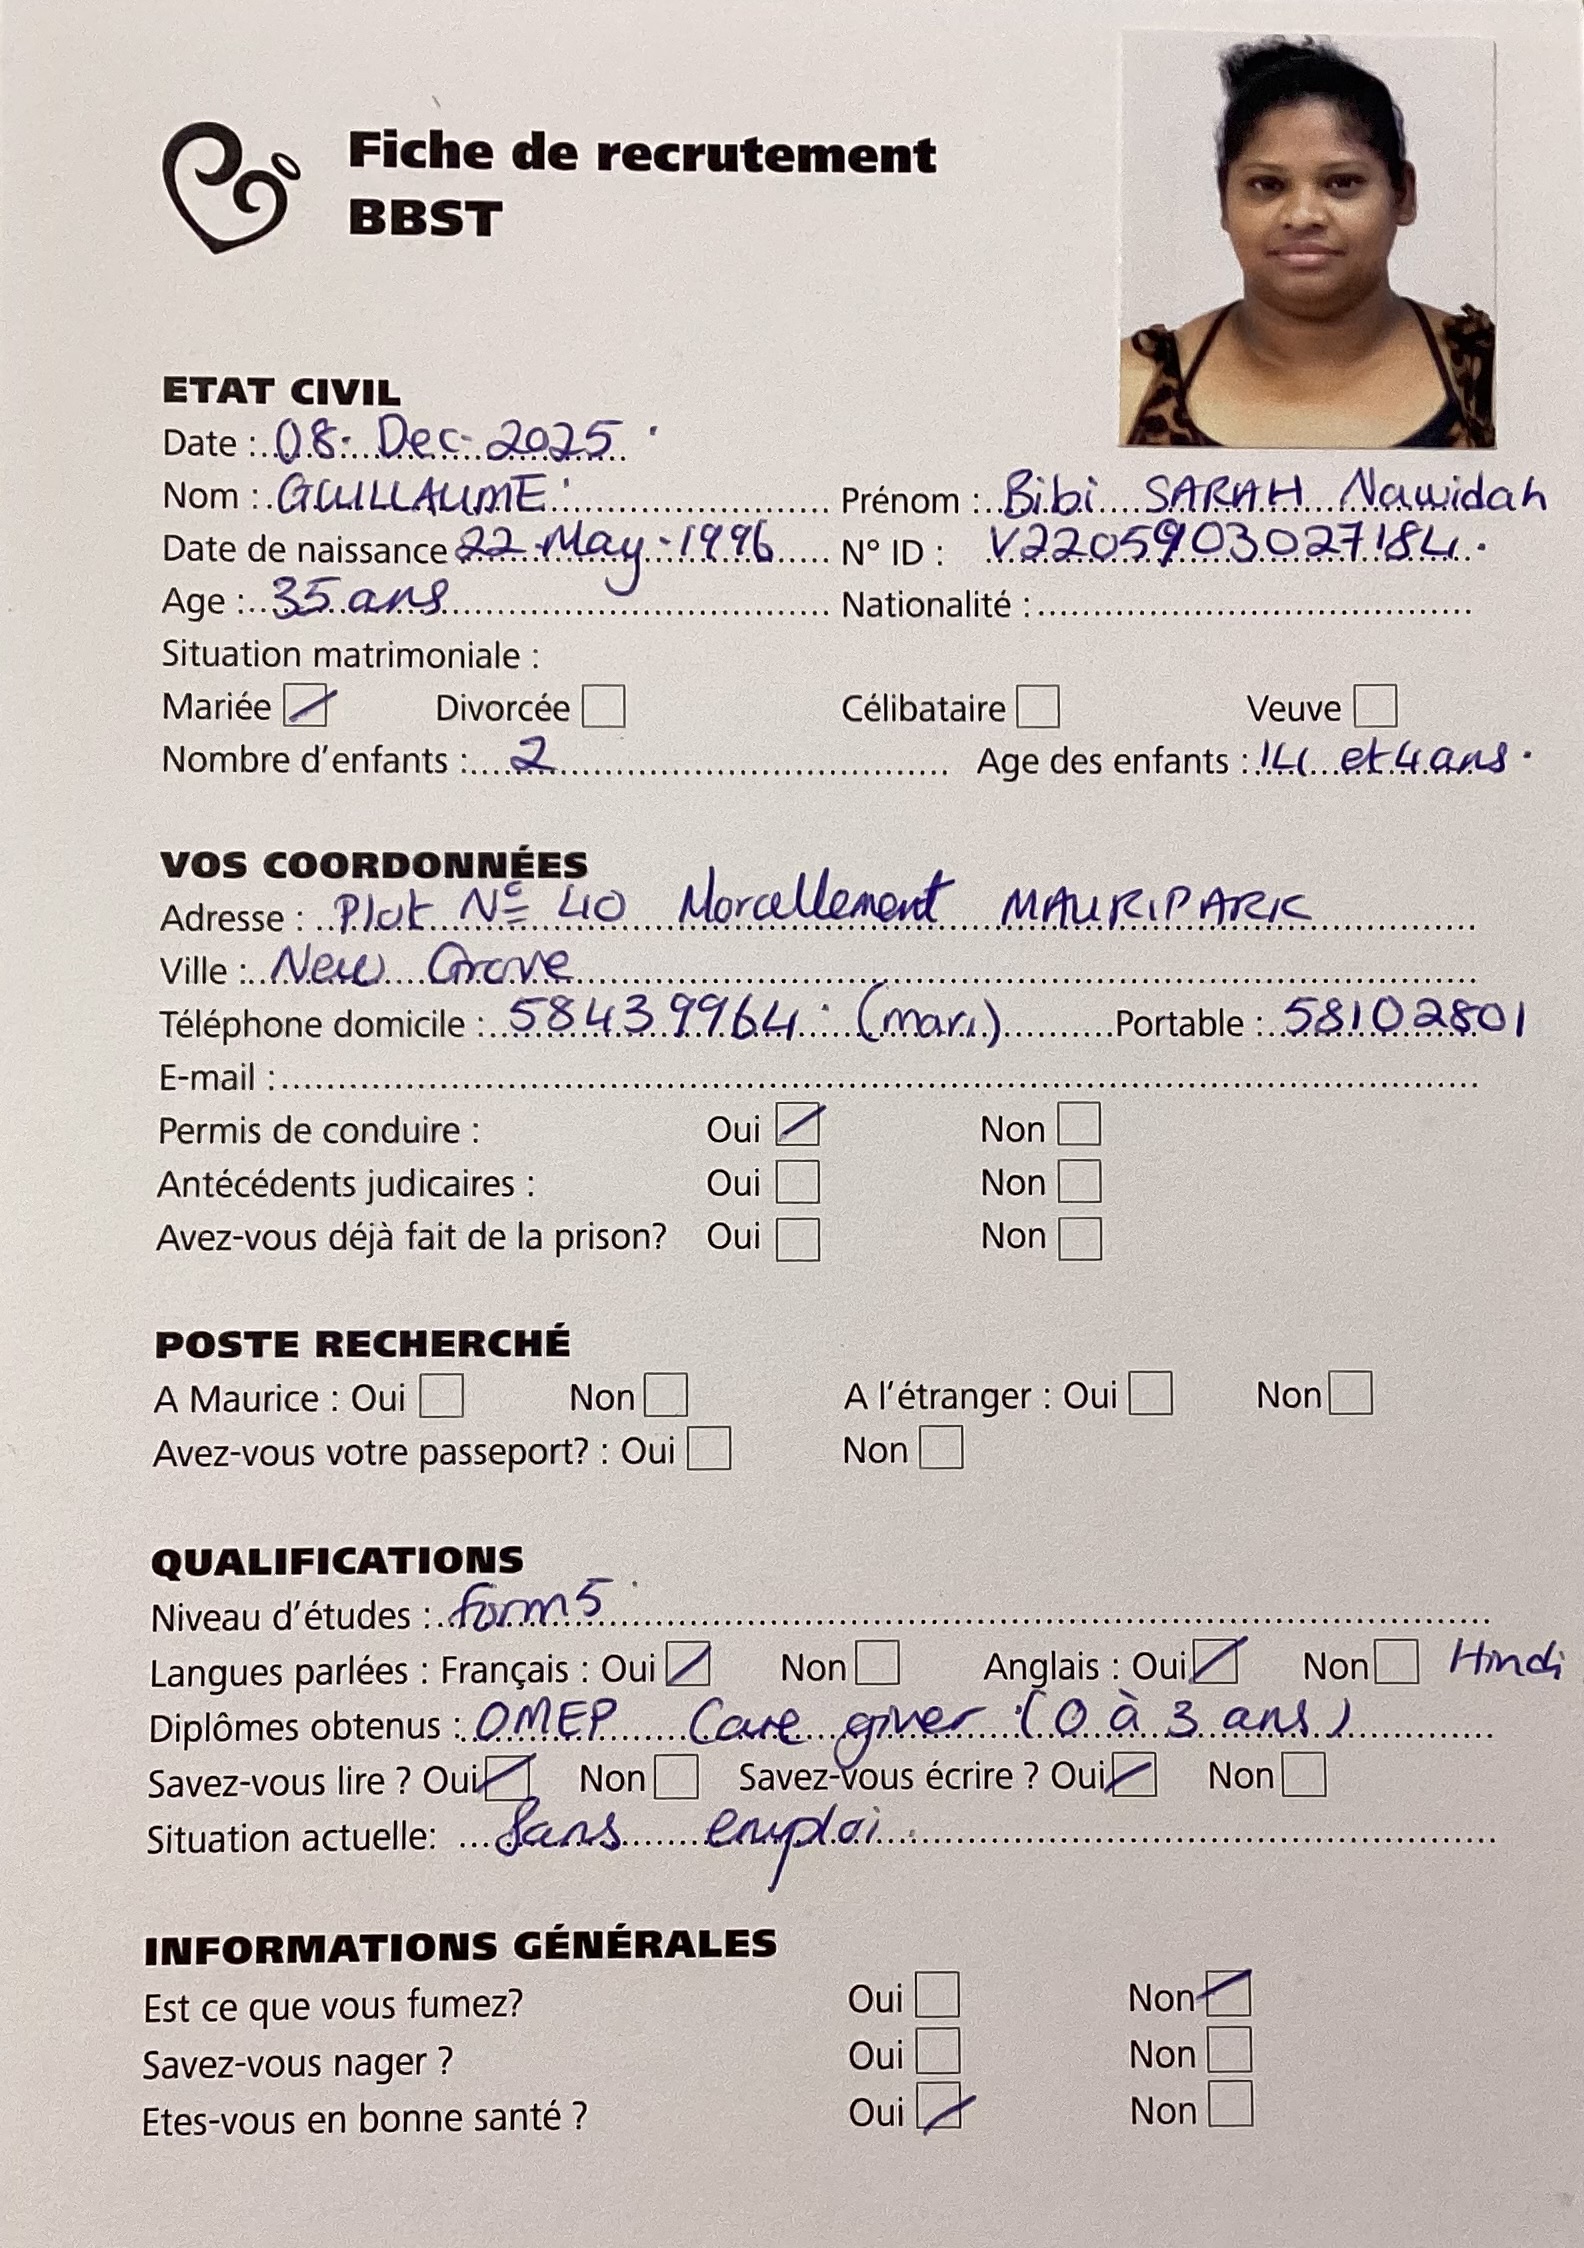 Fiche de recrutement
BBST
ETAT CIVIL
Date : 08. Dec. 2025
Nom : GUILLAUME Prénom : Bibi SARAH Nawidah
Date de naissance 22 May 1996 N° ID : V2205903027184.
Age : 35 ans Nationalité :
Situation matrimoniale :
Mariée Divorcée Célibataire Veuve
Nombre d'enfants : 2 Age des enfants : 14 et 4 ans.
VOS COORDONNÉES
Adresse : Plot No 40 Morcellement MAURIPARK
Ville : New Grove
Téléphone domicile : 58439964 (mari) Portable : 58102801
E-mail :
Permis de conduire : Oui Non
Antécédents judicaires : Oui Non
Avez-vous déjà fait de la prison? Oui Non
POSTE RECHERCHÉ
A Maurice : Oui Non A l'étranger : Oui Non
Avez-vous votre passeport? : Oui Non
QUALIFICATIONS
Niveau d'études : form 5
Langues parlées : Français : Oui Non Anglais : Oui Non Hindi
Diplômes obtenus : OMEP Care giver (0 à 3 ans)
Savez-vous lire ? Oui Non Savez-vous écrire ? Oui Non
Situation actuelle: Sans emploi
INFORMATIONS GÉNÉRALES
Est ce que vous fumez? Oui Non
Savez-vous nager ? Oui Non
Etes-vous en bonne santé ? Oui Non